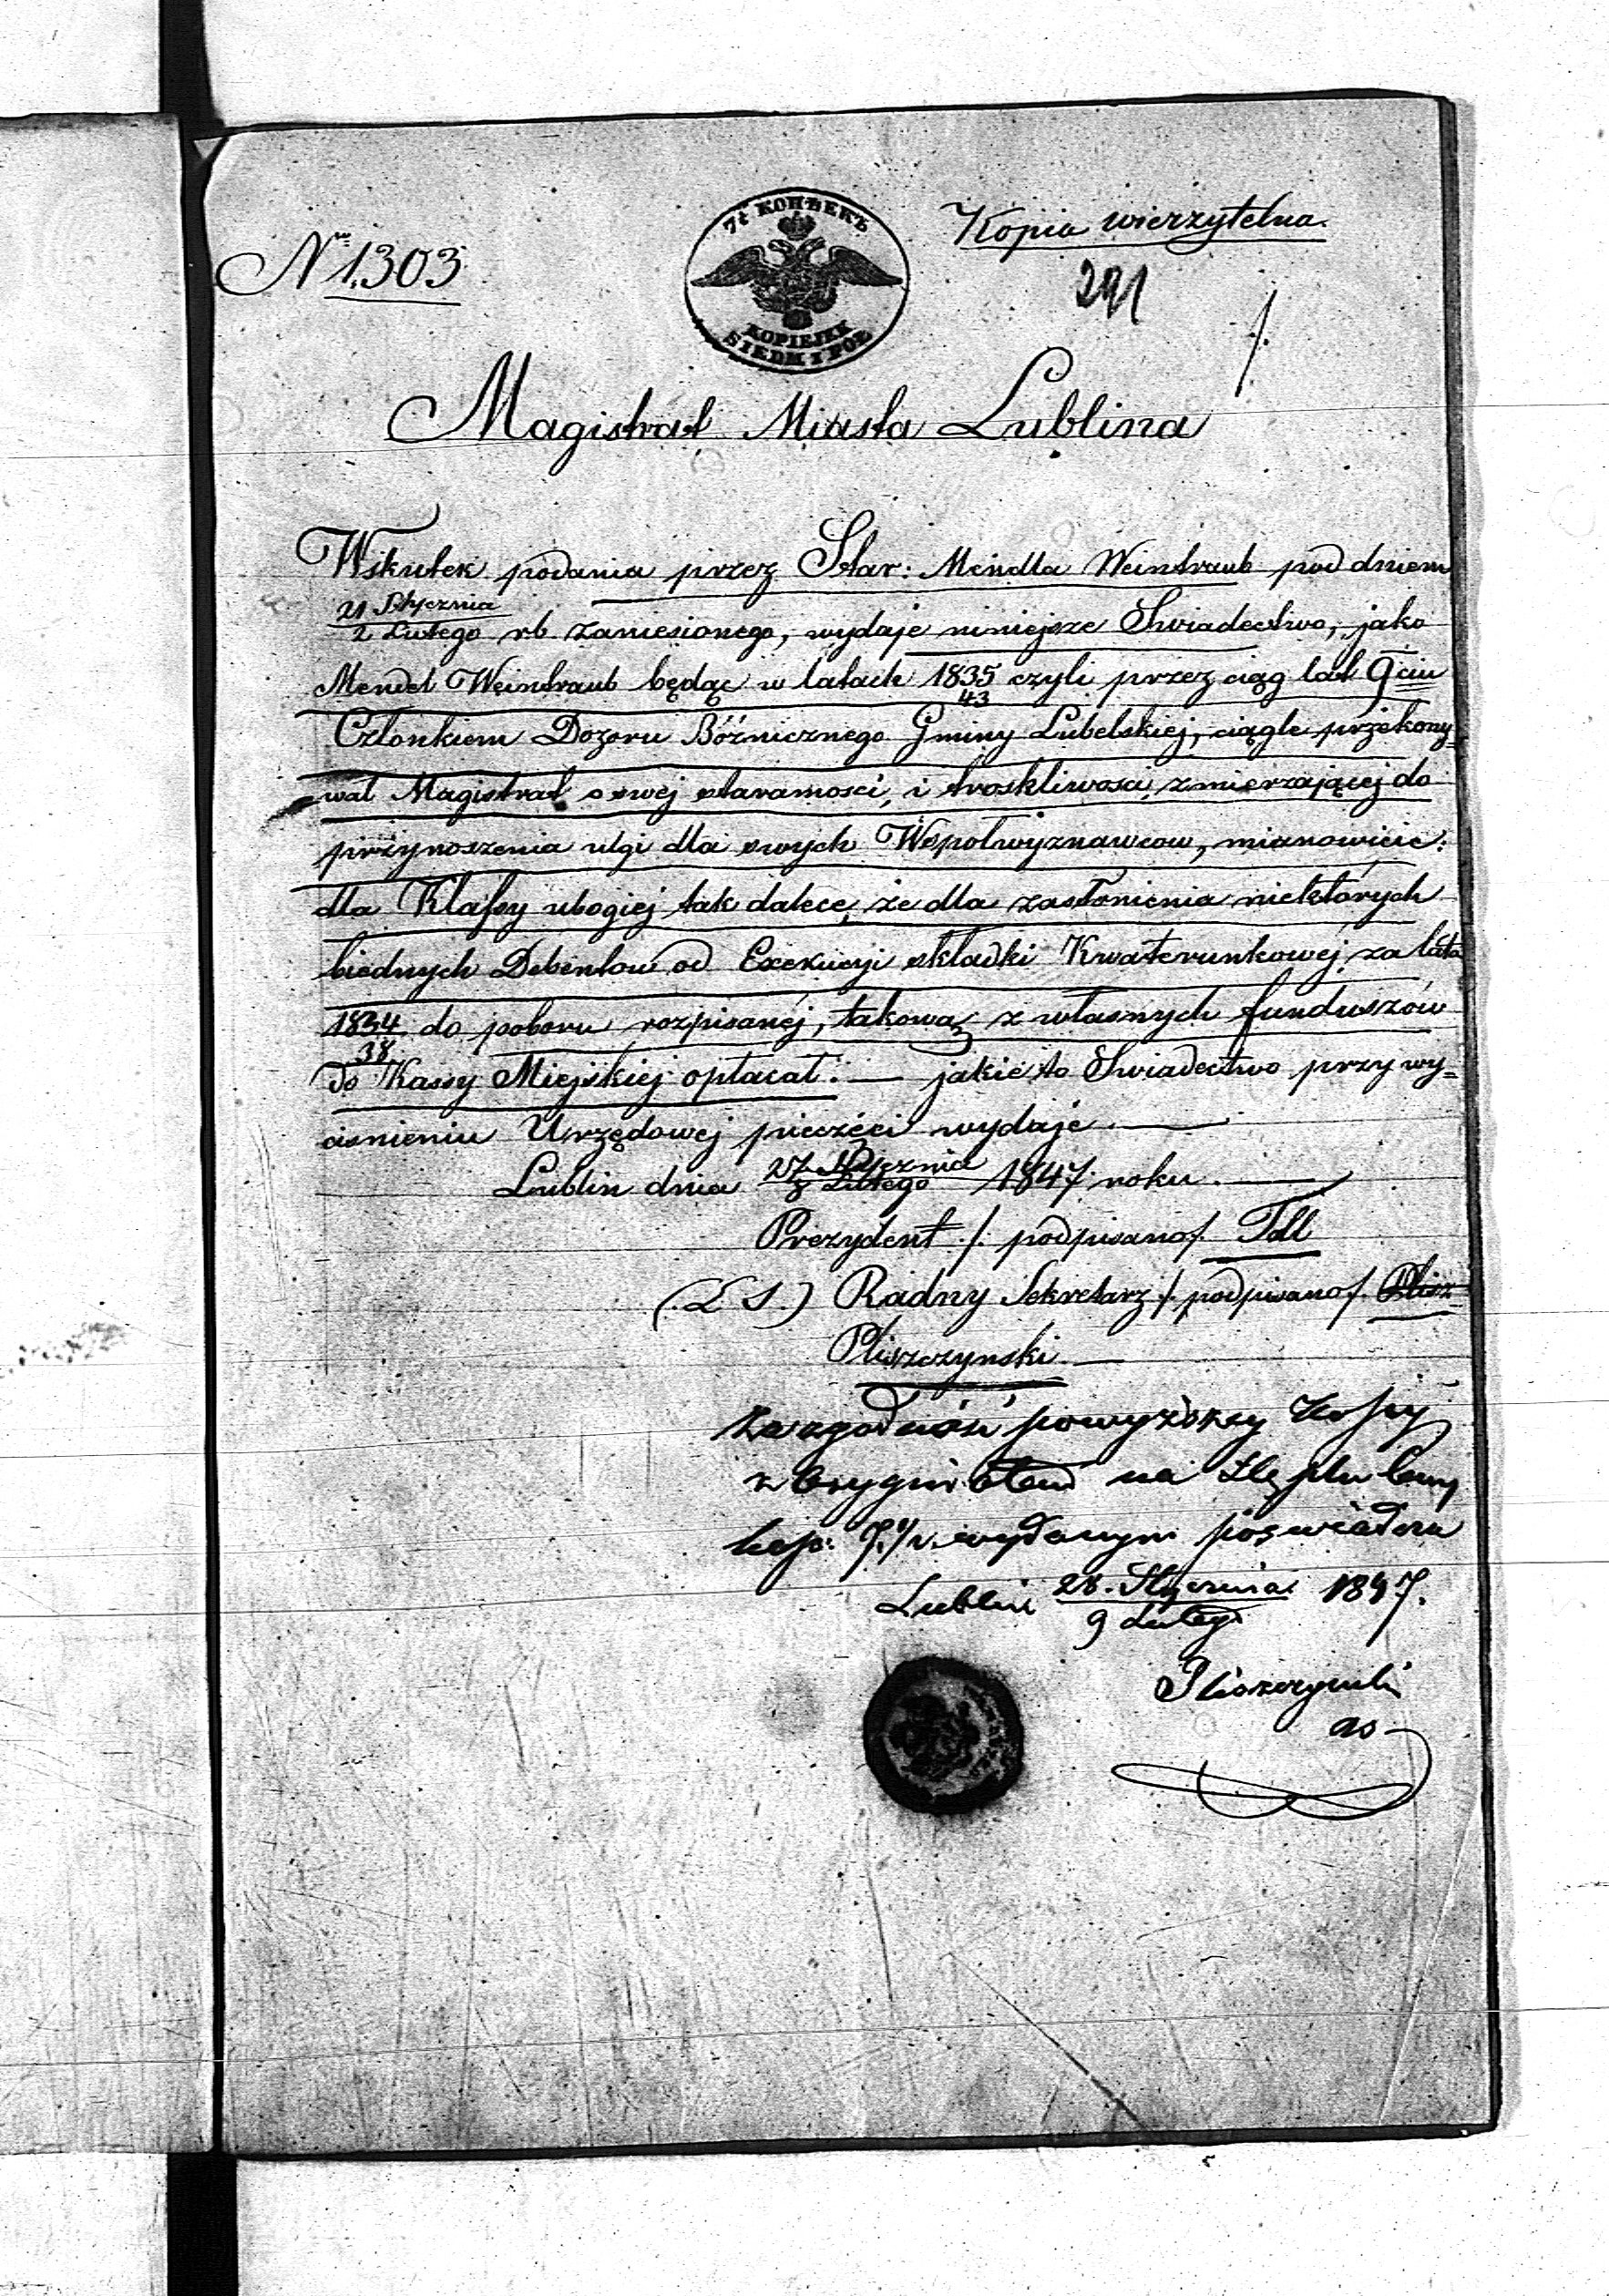 Kopia wierzytelna.
Nro 1,303
7½ КОПѢЕКЪ
KOPIEJEK
SIEDM I PÓŁ
291
Magistrat Miasta Lublina
Wskutek podania przez Star: Mendla Weintraub pod dniem
21 Stycznia
2 Lutego rb zaniesionego, wydaje niniejsze Swiadectwo, jako
Mendel Weintraub będąc w latach 1835 czyli przez ciąg lat 9ciu
43
Członkiem Dozoru Bóżnicznego Gminy Lubelskiej, ciągle przekony=
wał Magistrat o swej staranosci, i troskliwosci, zmierzającej do
przynoszenia ulgi dla swych Wspolwyznawcow, mianowicie:
dla Klassy ubogiej tak dalece, że dla zasłonienia niektórych
biednych Debentow od Exekucyi składki Kwaterunkowej, za lata
1834 do poboru rozpisanéj, takową z własnych funduszów
38
do Kassy Miejskiej opłacał. — jakie to Swiadectwo przy wy=
cisnieniu Urzędowej pieczęci wydaje —
Lublin dnia 27 Stycznia 1847 roku. —
8 Lutego
Prezydent /. podpisano /. Tall
(. L S .) Radny Sekretarz /. podpisano /. Plisz
Pliszczynski. —
Za zgodność powyższey Kopiy
z Oryginałem na Stęplu Ceny
kop: 7½ wydanym poswiadcza
Lublin 28. Stycznia 1847.
9 Lutego
Pliszczynski